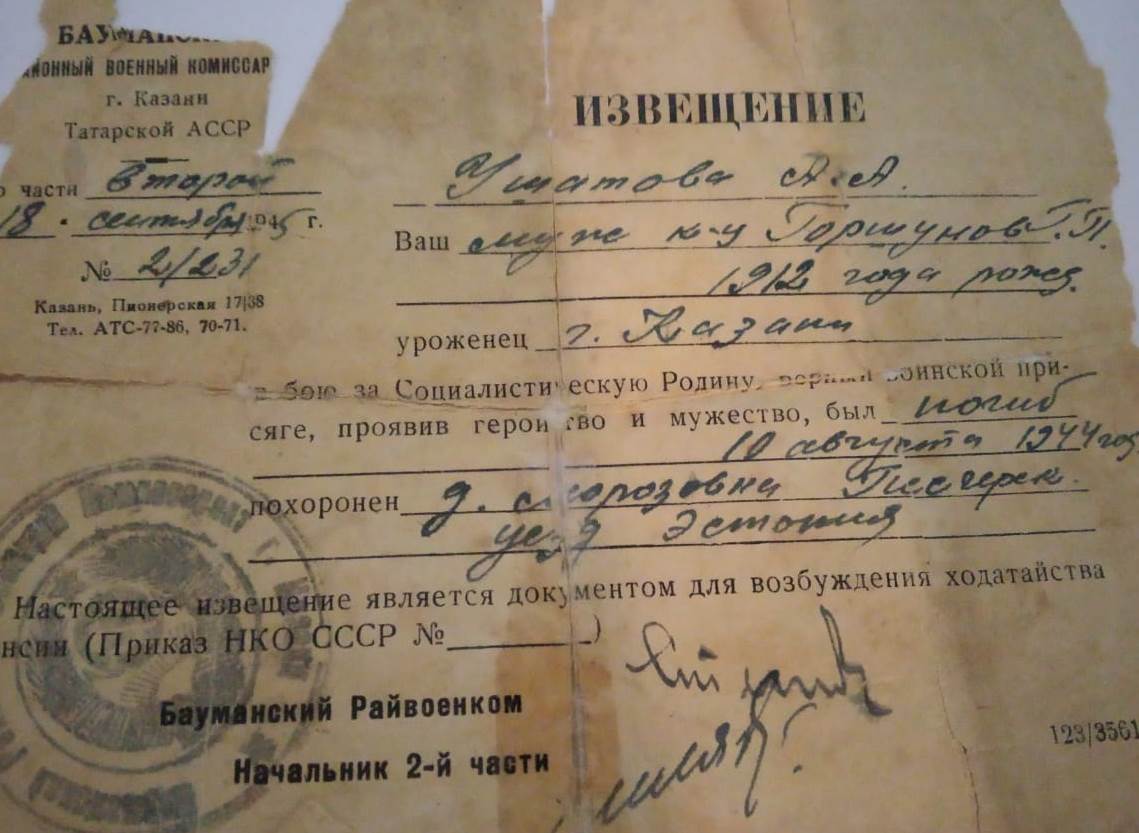 БАУМАНСКИ
ЙОННЫЙ ВОЕННЫЙ КОМИССАР
г. Казани
Татарской АССР
о части Второй
18 · сентября 1945 г.
№ 2/231
Казань, Пионерская 17/38
Тел. АТС-77-86, 70-71.
ИЗВЕЩЕНИЕ
Ушатова А.А.
Ваш муж к-у Горшунов Г.П.
1912 года рожд.
уроженец г. Казани
в бою за Социалистическую Родину, верный воинской при-
сяге, проявив геройство и мужество, был погиб
10 августа 1944 год
похоронен д.
уезд Эстония
Настоящее извещение является документом для возбуждения ходатайства
нсии (Приказ НКО СССР № )
Бауманский Райвоенком
Начальник 2-й части
123/3561